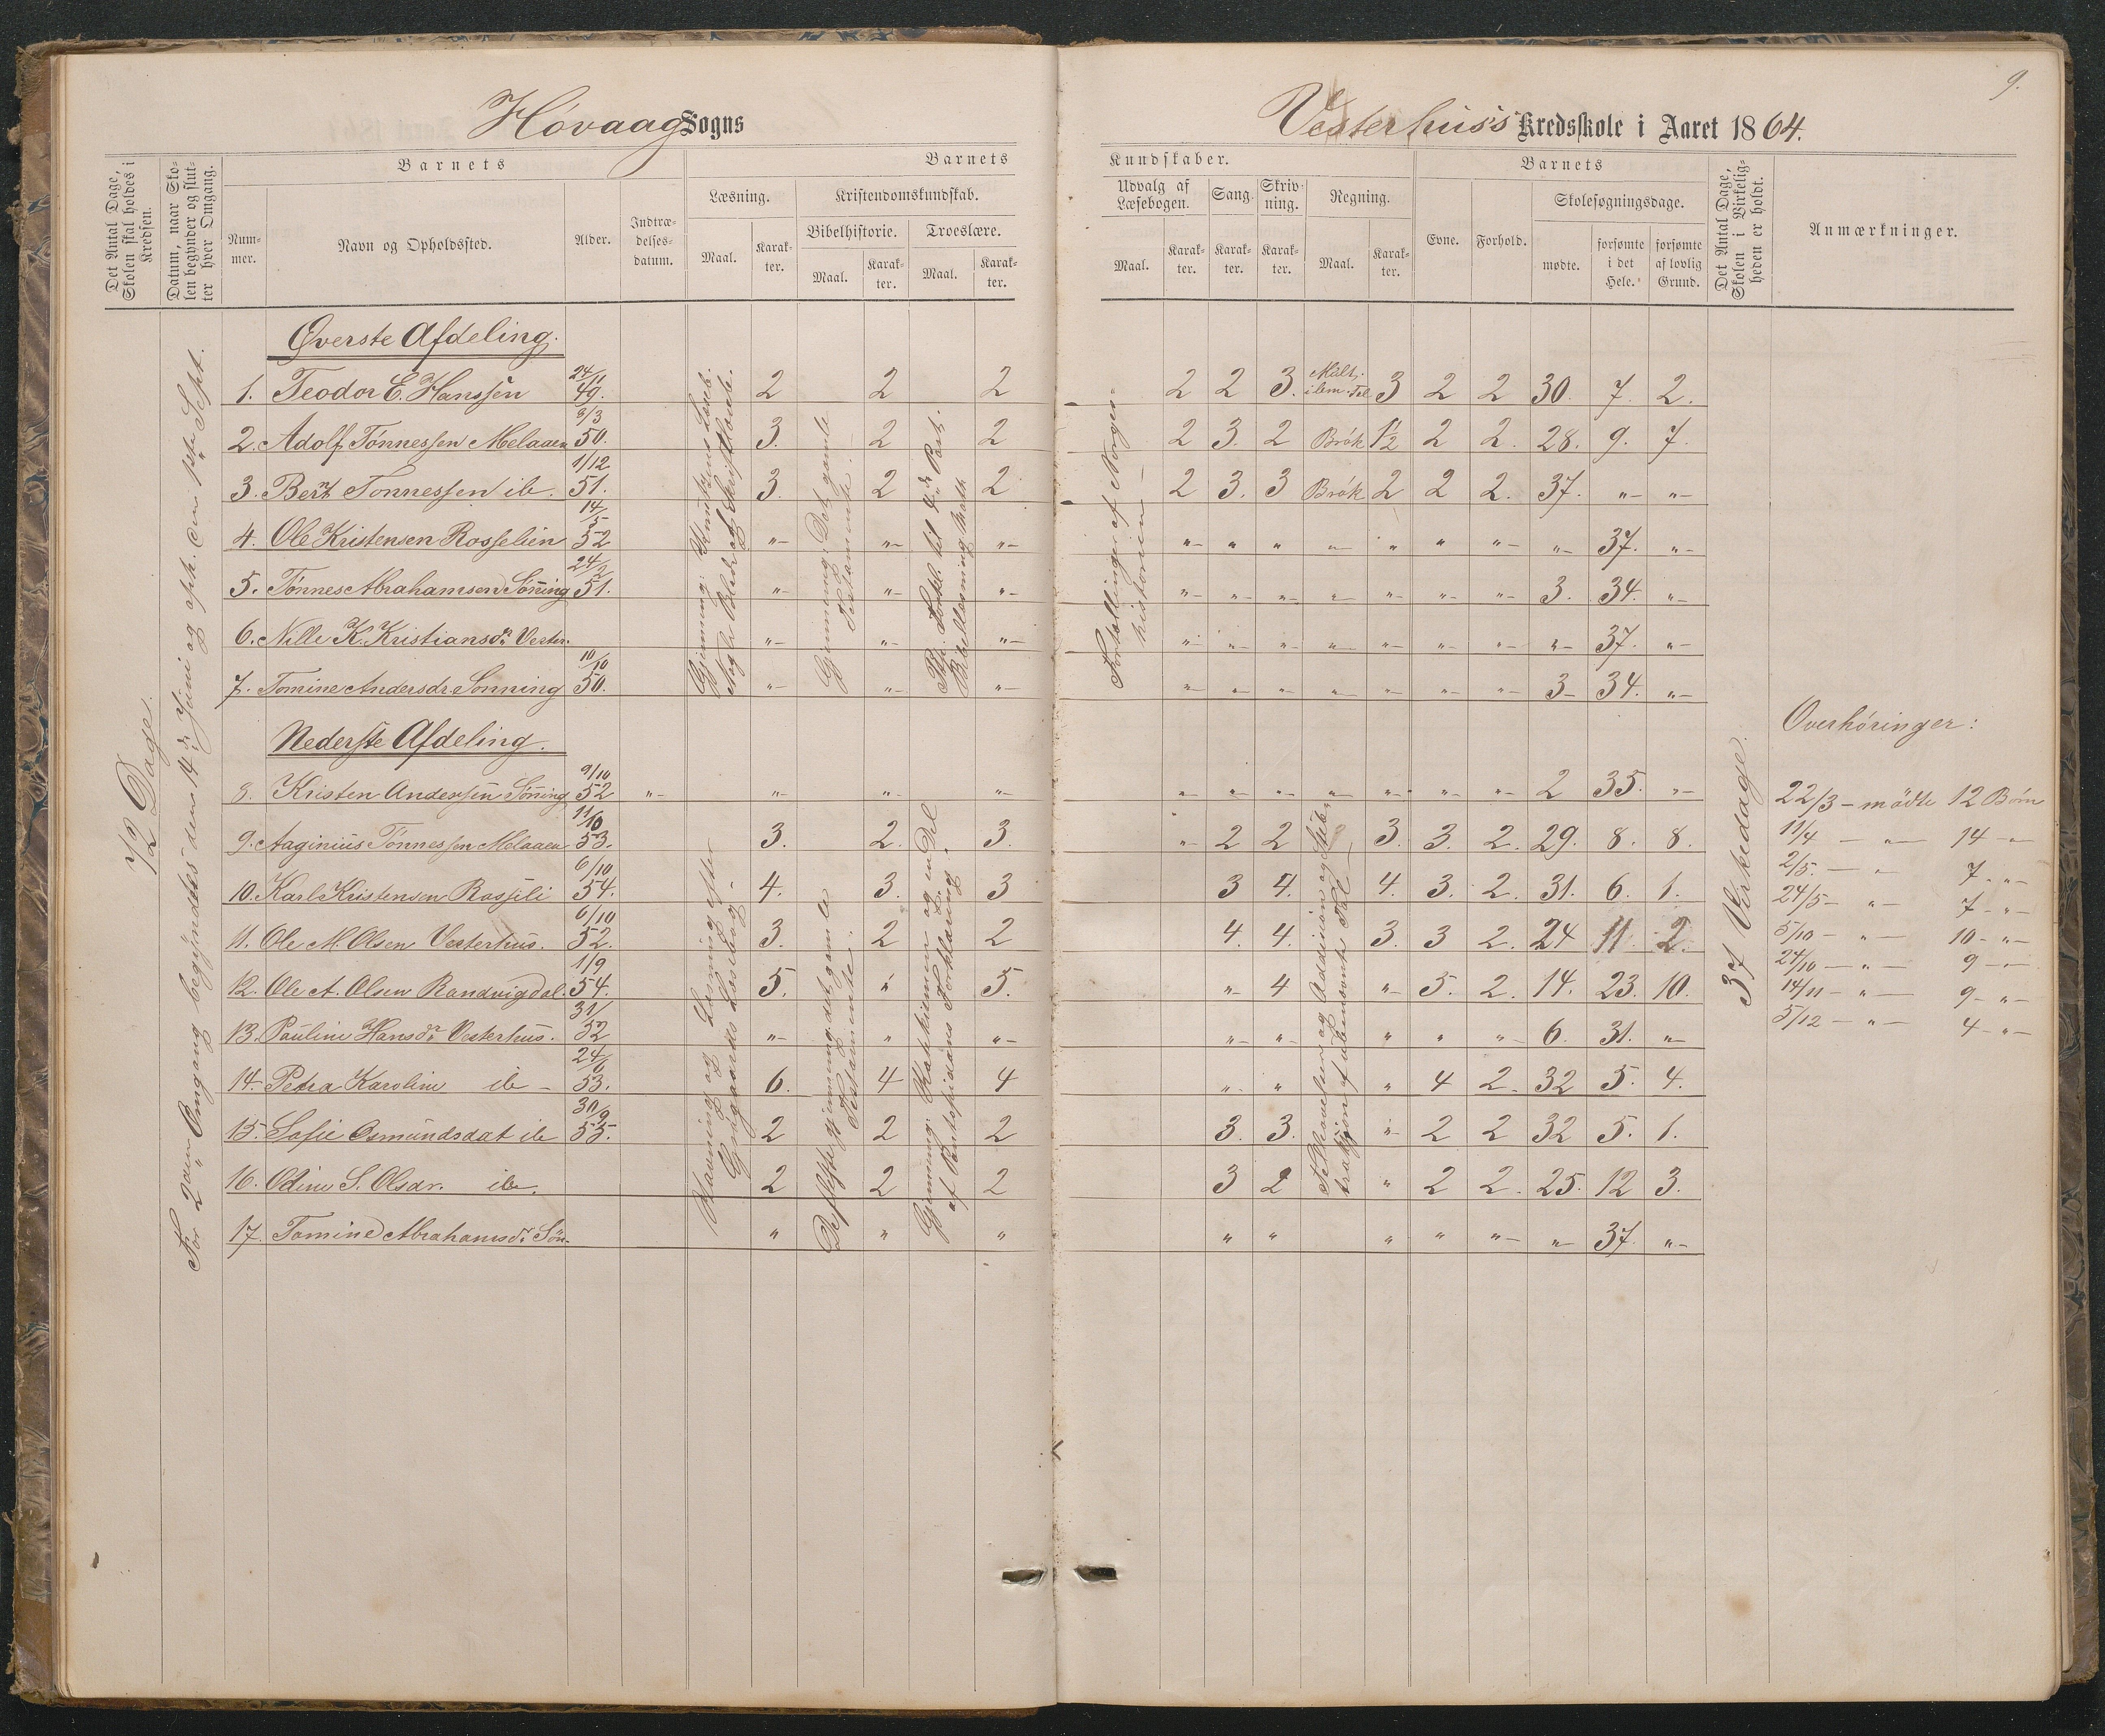 9.
Høvaag Sogns
Vesterhus's Kredsskole i Aaret 1864.
Det Antal Dage, Skolen skal holdes i Kredsen.
Datum, naar Skolen begynder og slutter hver Omgang.
Barnets
Nummer.
Navn og Opholdssted.
Alder.
Indtrædelsesdatum.
Barnets
Læsning.
Maal.
Karakter.
Kristendomskundskab.
Bibelhistorie.
Maal.
Karakter.
Troeslære.
Maal.
Karakter.
Kundskaber.
Udvalg af Læsebogen.
Maal.
Karakter.
Sang.
Karakter.
Skrivning.
Karakter.
Regning.
Maal.
Karakter.
Barnets
Evne.
Forhold.
Skolesøgningsdage.
mødte.
forsømte i det Hele.
forsømte af lovlig Grund.
Det Antal Dage, Skolen i Virkeligheden er holdt.
Anmærkninger.
72 Dage.
For 2den Omgang begyndtes den 14de Juni og oph. den Sept.
Øverste Afdeling.
1. Teodor E. Hanssen 24/11 49. 2 2 2 2 2 3. Mult. i bem. Tal 3 2 2 30. 7. 2.
2. Adolf Tønnessen Melaaen 3/3 50. 3. 2 2 2 3. 2 Brøk 1½ 2 2. 28. 9. 7.
3. Bernt Tønnessen ib. 1/12 51. 3. 2 2 2 3. 3 Brøk 2 2 2. 37. "- "-
4. Ole Kristensen Rosselien 14/5 52 "- "- "- "- " " "- " " "- "- 37. "-
5. Tønnes Abrahamsen Sønning 24/2 51. "- "- "- "- "- "- "- "- "- "- 3. 34. "-
6. Nille K. Kristiansdr Vester. "- "- "- "- "- "- "- "- "- "- "- 37. "-
7. Tomine Andersdr. Sønning 10/10 50. "- "- "- "- "- "- "- "- "- "- 3- 34. "-
Gjennemg: det gamle Testamente.
Fortællinger af Norgeshistorien -
Nederste Afdeling.
8. Kristen Andersen Sønning 9/10 52 "- "- "- "- "- "- "- "- "- "- "- 2 35. "-
9. Aaginius Tønnessen Melaaen 11/10 53. 3. 2. 3. "- 2 2 3. 3. 2. 29. 8. 8.
10. Karl Kristensen Rosseli 6/10 54. 4. 3. 3 3 4. 4. 3. 2. 31. 6. 1.
11. Ole M. Olsen Vesterhus. 6/10 52. 3. 2 2 4. 4. 3. 3 2. 24 11. 2.
12. Ole A. Olsen Randvigdal. 1/9 54. 5. " 5. "- 4 "- 5. 2. 14. 23. 10.
13. Pauline Hansdr Vesterhus. 31/ 52 "- " "- "- "- " " "- 6. 31. "-
14. Petra Karoline ib - 24/6 53. 6. 4 4 "- " " 4 2. 32 5. 4.
15. Sofie Osmundsdat ib 30/9 55. 2 2 2 3. 3. "- 2 2 32 5. 1.
16. Odine S. Olsdr. ib. 2 2 2 3 2 " 2 2. 25. 12 3.
17. Tomine Abrahamsdr Søn. " " " " " " " "- "- 37. "-
37 Virkedage.
Overhøringer:
22/3 - mødte 12 Børn
11/4 - "- 14 -"-
2/5. - " 7. -"-
24/5 - "- 7 -"-
5/10 - "- 10 -"-
24/10 - "- 9 -"-
14/11 - "- 9 -"-
5/12 - "- 4 -"-